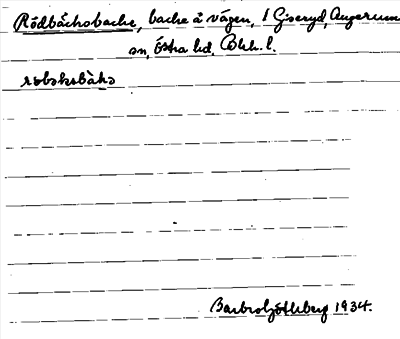 Rödbäcksbacke, backe å vägen, 1 Giseryd, Augerum
sn, Östra hd, Blek. l.
röbäksbäkə
Barbro Götlberg 1934.